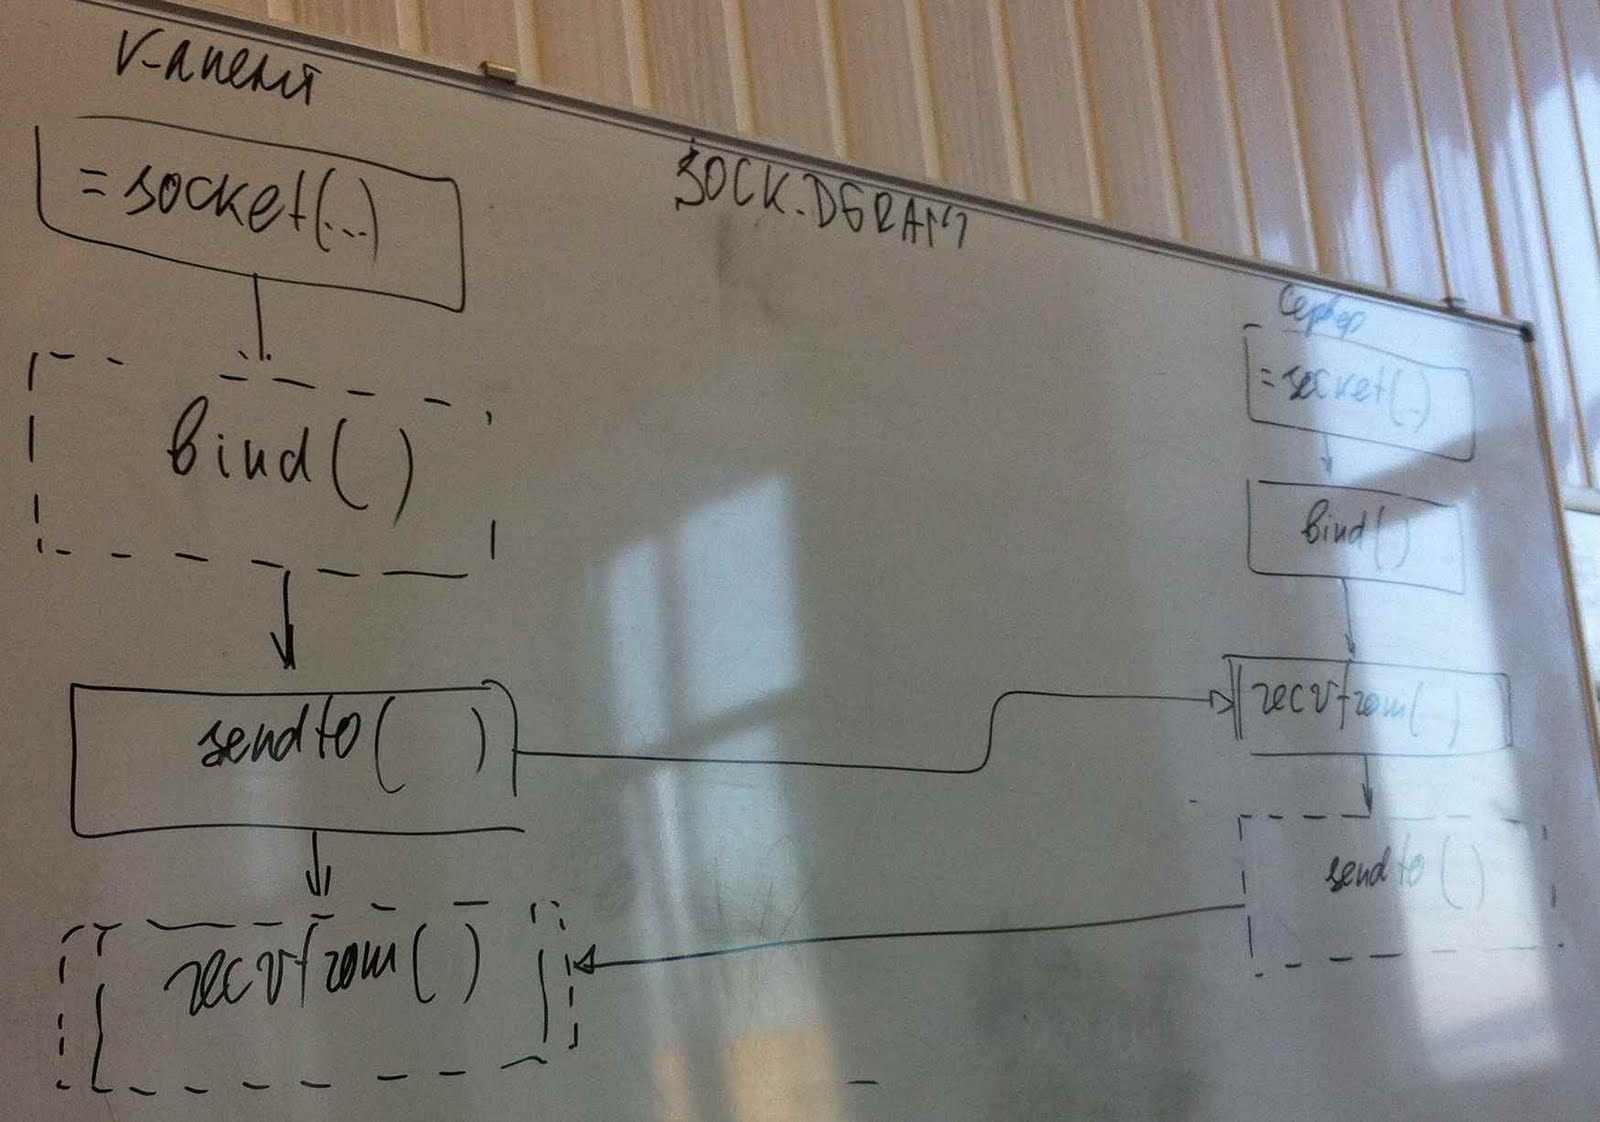 клиент
= socket(...)
bind( )
sendto( )
recvfrom( )
SOCK_DGRAM
Сервер
= socket(...)
bind( )
recvfrom( )
sendto( )